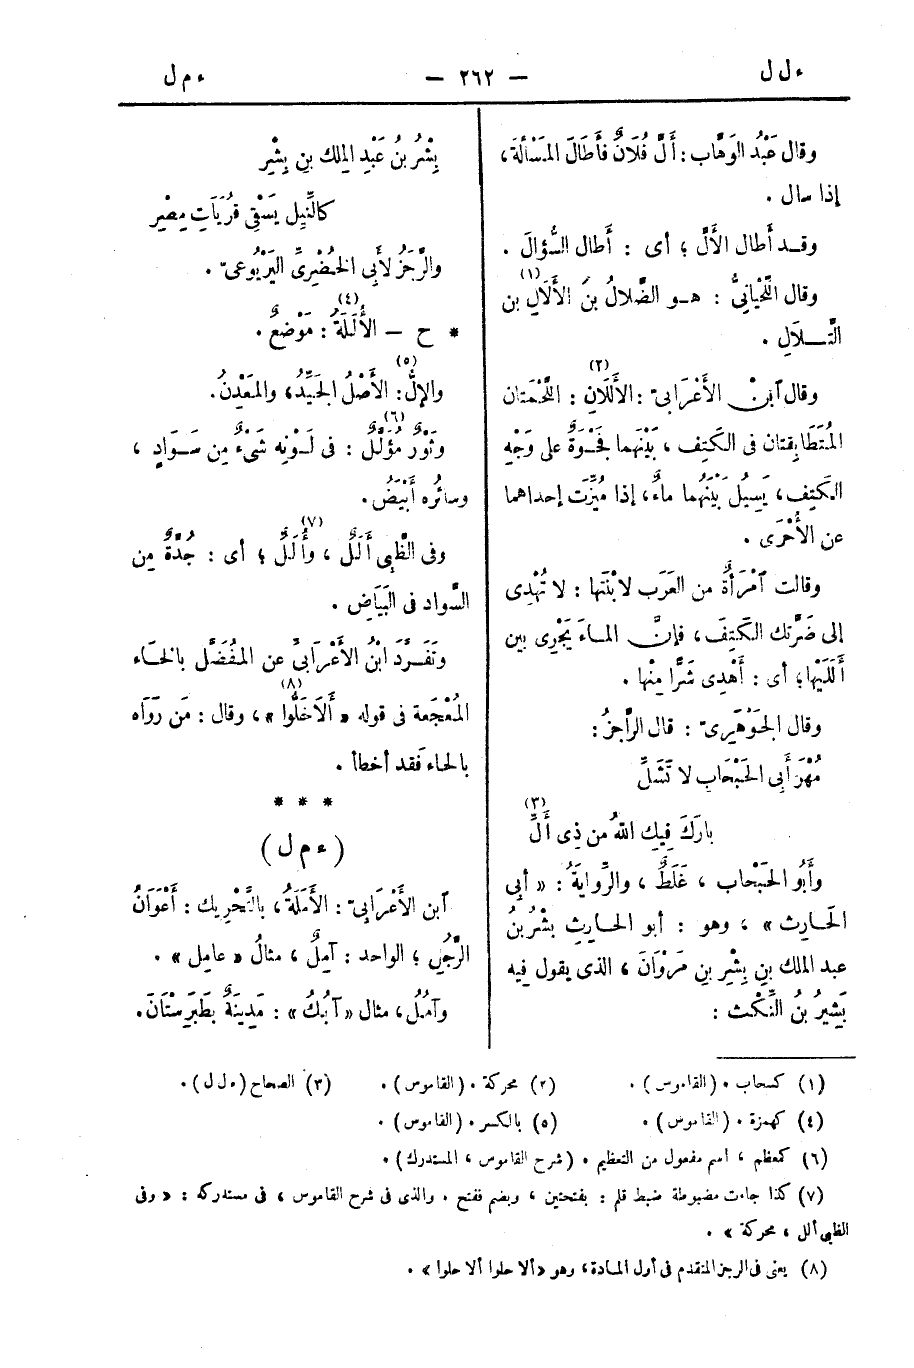 ءلل — ٢٦٢ — ءمل
وقال عَبْدُ الوَهَّاب: أَلَّ فُلَانٌ فأَطَالَ المَسْأَلَةَ،
إذا سال.
وقد أطال الأَلَّ؛ أى: أَطالَ السُّؤالَ.
وقال اللِّحْيانِىُّ: هو الضَّلالُ بْنُ الأَلَالِ(١) بن
التَّلالِ.
وقال ٱبنُ الأَعْرَابىّ: الأَلَلَانِ(٢): اللَّحْمَتان
المُتَطابِقتان فى الكَتِف، بَيْنَهما فَجْوَةٌ على وَجْهِ
الكَتِف، يَسِيلُ بَيْنَهُما ماءٌ، إذا مُيِّزَت إحداهما
عن الأُخْرَى.
وقالت ٱمْرَأَةٌ من العَرَب لابْنَتِها: لا تُهْدِى
إلى ضَرَّتك الكَتِفَ، فإنَّ الماءَ يَجْرِى بين
أَلَلَيْها؛ أى: أَهْدِى شَرًّا مِنْها.
وقال الجَوْهَرِىّ: قال الرَّاجِزُ:
مُهْرَ أَبِى الحَبْحَابِ لا تَشَلِّ
بارَكَ فِيكِ اللهُ من ذِى أَلِّ(٣)
وأَبُو الحَبْحاب، غَلَطٌ، والرِّوايَةُ: «أبِى
الحَارِث»، وهو: أبو الحارِثِ بِشْرُ بنُ
عبد الملك بنِ بِشْرِ بنِ مَرْوَانَ، الذى يقول فيه
بَشِيرُ بنُ النِّكْث:
بِشْرُ بنُ عَبْدِ المَلِك بنِ بِشْرِ
كالنِّيلِ يَسْقِى قُرَيَاتِ مِصْرِ
والرَّجَزُ لأَبِى الخُضْرِىّ اليَرْبُوعىّ.
* ح — الأُلَلَةُ(٤): مَوْضعٌ.
والإِلُّ(٥): الأَصْلُ الجَيِّدُ، والمَعْدِنُ.
وثَوْرٌ مُؤَلَّلٌ(٦): فى لَوْنِه شَىْءٌ مِن سَوَادٍ،
وسائرُه أَبْيَضُ.
وفى الظَّبْىِ أَلَلٌ، وأُلَلٌ(٧)؛ أى: جُدَّةٌ مِن
السَّواد فى البَيَاضِ.
وتَفَرَّدَ ابْنُ الأَعْرَابىِّ عن المُفَضَّل بالخاء
المُعْجَمة فى قوله «أَلَا خَلُّوا»(٨)، وقال: مَن رَوَاه
بالحاء فَقد أخطأ.
* * *
(ءمل)
ٱبن الأَعْرَابىّ: الأَمَلَةُ، بالتَّحْرِيك: أَعْوَانُ
الرَّجُلِ؛ الواحد: آمِلٌ، مثالُ «عامِل».
وآمُلُ، مثال «آنُكُ»: مَدِينَةٌ بطَبَرِسْتَانَ.
(١) كسحاب. (القاموس). (٢) محركة. (القاموس). (٣) الصحاح (ءلل).
(٤) كهمزة. (القاموس). (٥) بالكسر. (القاموس).
(٦) كمعظم، اسم مفعول من التعظيم. (شرح القاموس، المستدرك).
(٧) كذا جاءت مضبوطة ضبط قلم: بفتحتين، وبضم ففتح. والذى فى شرح القاموس، فى مستدركه: «وفى
الظبى ألل، محركة».
(٨) يعنى فى الرجز المتقدم فى أول المادة، وهو «ألا حلوا ألا حلوا».